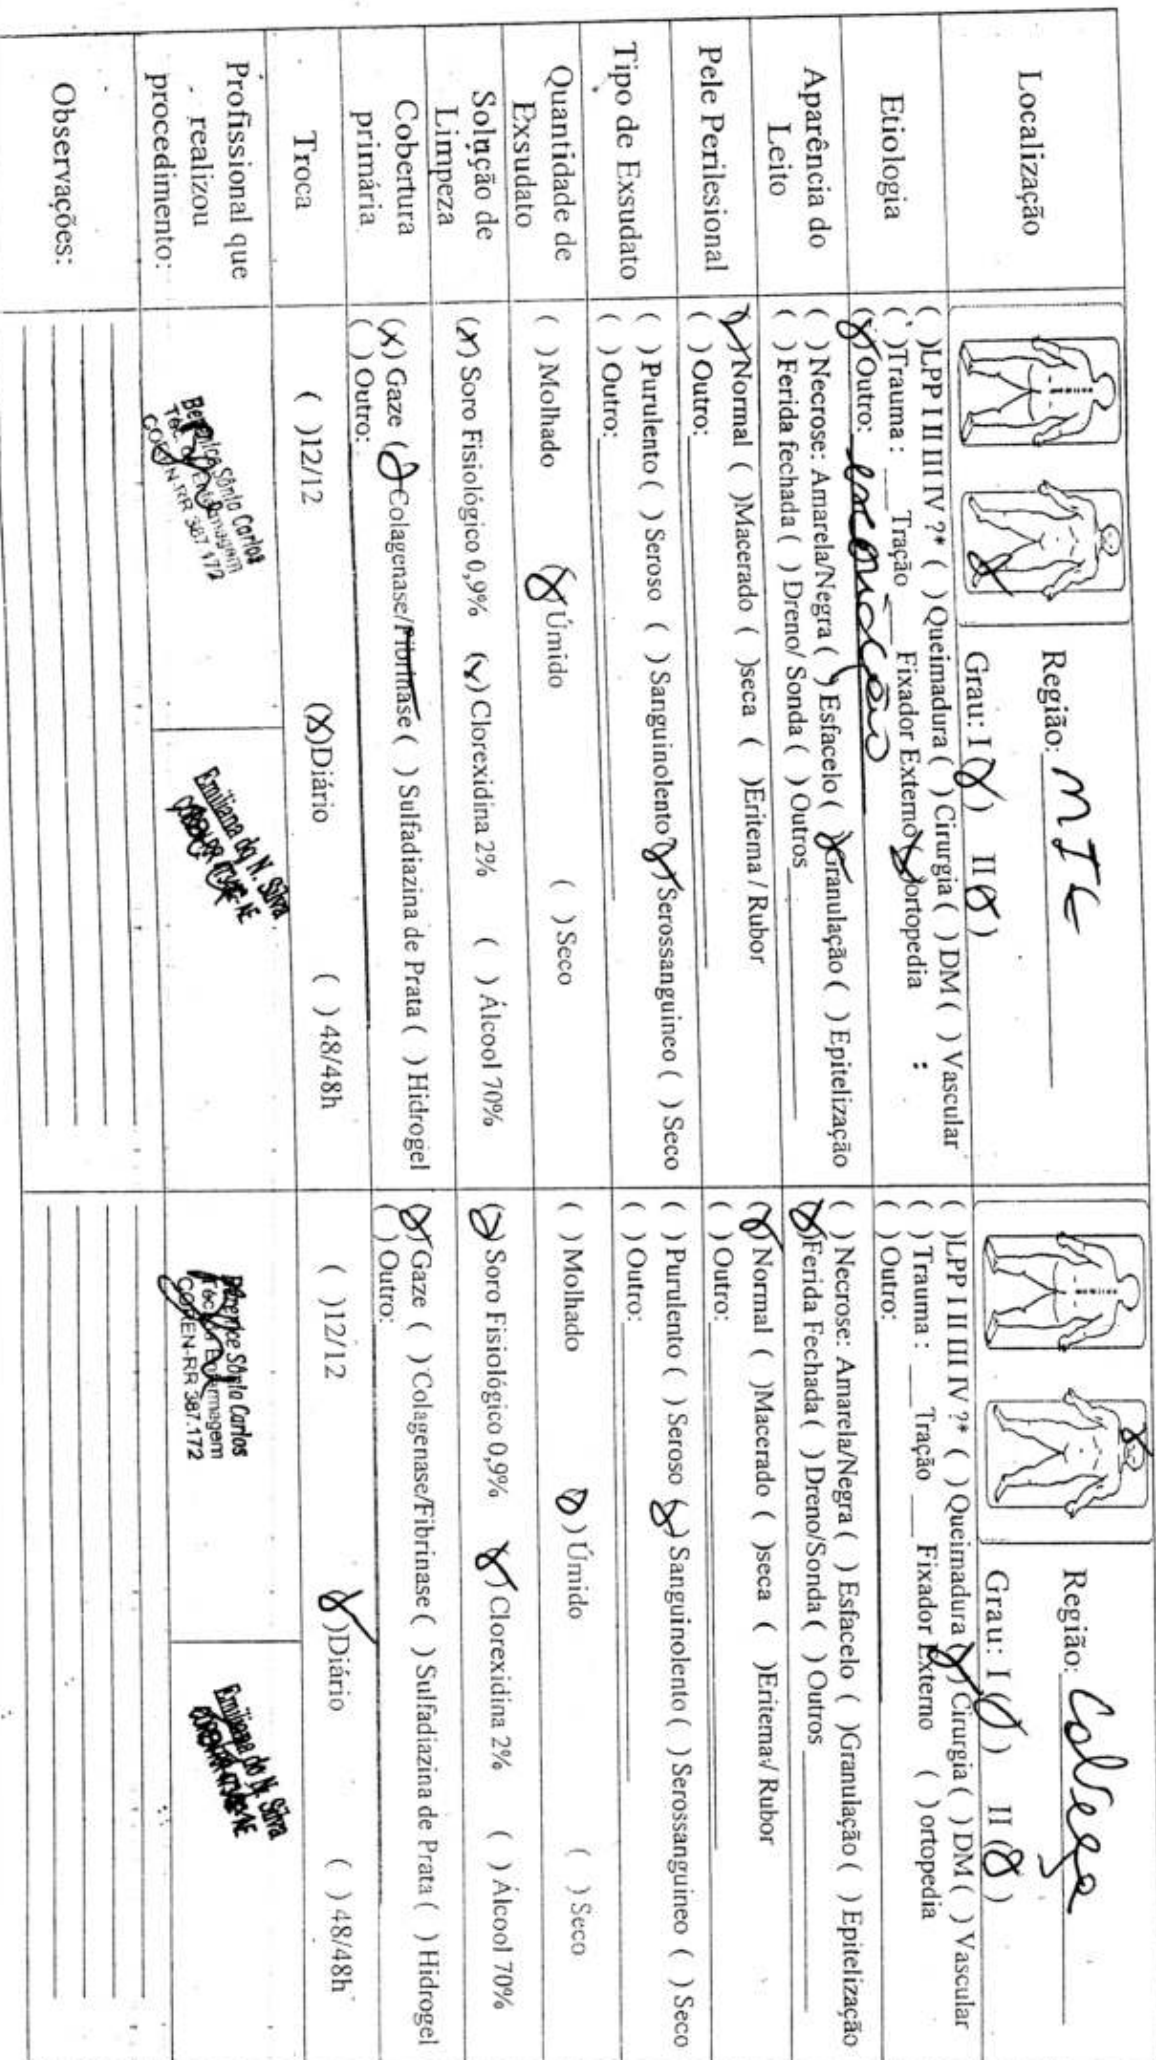 Localização
Região: MIE
Grau: I (X) II (X)
Região: Cabeça
Grau: I (X) II (X)
Etiologia
( )LPP I II III IV ?* ( )Queimadura ( )Cirurgia ( )DM ( )Vascular
( )Trauma : ___Tração ___ Fixador Externo (X)ortopedia
(X)Outro: escoriação
( )LPP I II III IV ?* ( )Queimadura (X)Cirurgia ( )DM ( )Vascular
( )Trauma : ___Tração ___Fixador Externo ( )ortopedia
( )Outro:
Aparência do
Leito
( )Necrose: Amarela/Negra ( ) Esfacelo (X)Granulação ( ) Epitelização
( ) Ferida fechada ( ) Dreno/ Sonda ( ) Outros
( )Necrose: Amarela/Negra ( ) Esfacelo ( )Granulação ( ) Epitelização
(X)Ferida Fechada ( ) Dreno/Sonda ( ) Outros
Pele Perilesional
(X)Normal ( )Macerado ( )seca ( )Eritema / Rubor
( ) Outro:
(X)Normal ( )Macerado ( )seca ( )Eritema/ Rubor
( )Outro:
Tipo de Exsudato
( ) Purulento ( ) Seroso ( ) Sanguinolento (X)Serossanguineo ( ) Seco
( ) Outro:
( ) Purulento ( ) Seroso (X)Sanguinolento ( ) Serossanguineo ( ) Seco
( ) Outro:
Quantidade de
Exsudato
( )Molhado (X)Úmido ( )Seco
( )Molhado (X)Úmido ( )Seco
Solução de
Limpeza
(X) Soro Fisiológico 0,9% (X) Clorexidina 2% ( ) Álcool 70%
(X) Soro Fisiológico 0,9% (X)Clorexidina 2% ( ) Álcool 70%
Cobertura
primária
(X) Gaze (X)Colagenase/Fibrinase ( ) Sulfadiazina de Prata ( ) Hidrogel
( ) Outro:
(X)Gaze ( )Colagenase/Fibrinase ( ) Sulfadiazina de Prata ( ) Hidrogel
( )Outro:
Troca
( )12/12 (X)Diário ( ) 48/48h
( )12/12 (X)Diário ( ) 48/48h
Profissional que
realizou
procedimento:
Berenice Sônia Carlos
Téc. Enfermagem
COREN-RR 387.172
Emiliana do N. Silva
Berenice Sônia Carlos
Téc. Enfermagem
COREN-RR 387.172
Emiliana do N. Silva
Observações: